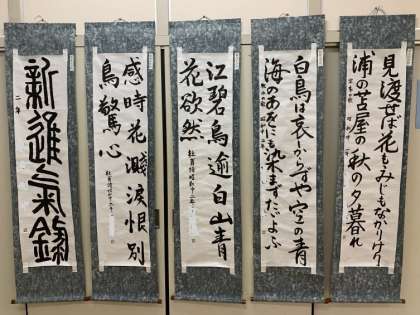 見渡せば花もみじもなかりけり
浦の苫屋の秋の夕暮れ
白鳥は哀しからずや空の青
海のあをにも染まずただよふ
江碧鳥逾白山青
花欲然
感時花濺涙恨別
鳥驚心
新進气鋭